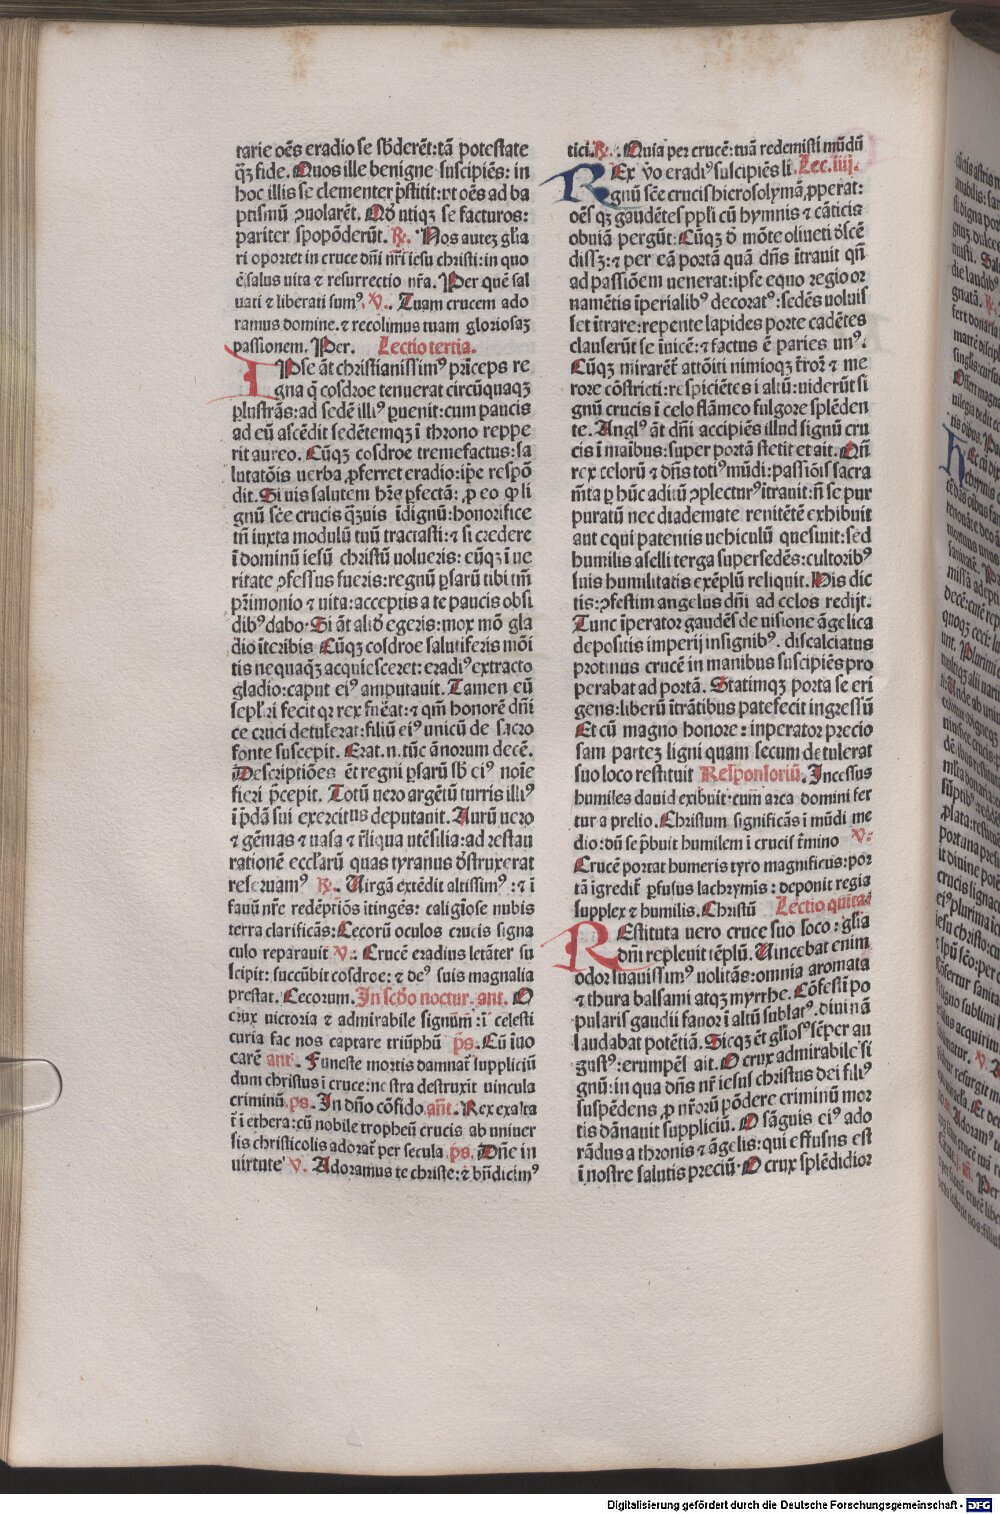 tarie oēs eradio se sb̄derēt: tā potestate
qȝ fide. Quos ille benigne suscipiēs: in
hoc illis se clementer p̄stitit: vt oēs ad ba
ptismū ꝯuolarēt. Qd̄ utiqȝ se facturos:
pariter spopōderūt. ℟. Nos auteȝ gl̄ia
ri oportet in cruce dn̄i nr̄i iesu christi: in quo
ē salus uita ⁊ resurrectio nr̄a. Per quē sal
uati ⁊ liberati sumꝰ. ℣. Tuam crucem ado
ramus domine. ⁊ recolimus tuam gloriosaȝ
passionem. Per. Lectio tertia.
IPse āt christianissimꝰ prīceps re
gna q̄ cosdroe tenuerat circūquaqȝ
plustrās: ad sedē illiꝰ puenit: cum paucis
ad eū ascēdit sedētemqȝ ī throno reppe
rit aureo. Cūqȝ cosdroe tremefactus: sa
lutatōis uerba ꝓferret eradio: ip̄e respō
dit. Si uis salutem hr̄e ꝑfectā: ꝓ eo qꝫ li
gnū sc̄e crucis qȝuis īdignū: honorifice
tn̄ iuxta modulū tuū tractasti: ⁊ si credere
ī dominū iesū christū uolueris: cūqȝ ī ue
ritate ꝯfessus fueris: regnū ꝑsarū tibi cū
pr̄imonio ⁊ uita: acceptis a te paucis obsi
dibꝰ dabo. Si āt alid̄ egeris: mox mō gla
dio īteribis Cūqȝ cosdroe salutiferis mōi
tis nequaqȝ acquiesceret: eradiꝰ extracto
gladio: caput eiꝰ amputauit. Tamen eū
sepl̄iri fecit qꝛ rex fuēat: ⁊ qm̄ honorē dn̄i
ce cruci detulerat: filiū eiꝰ unicū de sacro
fonte suscepit. Erat. n. tūc ānorum decē.
Descriptiōes ēt regni ꝑsarū sb̄ eiꝰ noīe
fieri p̄cepit. Totū uero argētū turris illiꝰ
ī p̄dā sui exercitus deputauit. Aurū uero
⁊ gēmas ⁊ uasa ⁊ r̄liqua utēsilia: ad restau
rationē eccl̄arū quas tyranus d̄struxerat
reseruamꝰ ℟. Uirgā extēdit altissimꝰ: ⁊ ī
fauū nr̄e redēptiōs ītingēs: caligiose nubis
terra clarificās: Cecorū oculos crucis signa
culo reparauit ℣. Crucē eradius letāter su
scipit: succūbit cosdroe: ⁊ deꝰ suis magnalia
prestat. Cecorum. In scd̄o noctur. ant. O
crux uictoria ⁊ admirabile signum: ī celesti
curia fac nos captare triūphū ps̄. Cū īuo
carē ant̄. Funeste mortis damnat̄ suppliciū
dum christus ī cruce: nostra destruxit uincula
criminū. ps. In dn̄o cōfido. ant̄. Rex exalta
t̄ ī ethera: cū nobile tropheū crucis ab uniuer
sis christicolis adorat̄ per secula. ps. Dn̄e in
uirtute ℣. Adoramus te christe: ⁊ bn̄dicimꝰ
tici. ℟. Quia per crucē: tuā redemisti mūdū
REx v̄o eradiꝰ suscipiēs li Lec. iiij.
gnū sc̄e crucis hierosolymā ꝓperat:
oēs qȝ gaudētes ppl̄i cū hymnis ⁊ cāticis
obuiā pergūt: Cūqȝ d̄ mōte oliueti d̄scē
dissȝ: ⁊ per eā portā quā dn̄s ītrauit qn̄
ad passiōem uenerat: ipse equo regio or
namētis īperialibꝰ decoratꝰ: sedēs uoluis
set ītrare: repente lapides porte cadētes
clauserūt se īuicē: ⁊ factus ē paries unꝰ.
Cūqȝ mirarēt̄ attōiti nimioqȝ t̄ror̄ ⁊ me
rore cōstricti: respiciētes ī altū: uiderūt si
gnū crucis ī celo flāmeo fulgore splēden
te. Anglꝰ āt dn̄i accipiēs illud signū cru
cis ī maībus: super portā stetit et ait. Qn̄
rex celorū ⁊ dn̄s totiꝰ mūdi: passiōis sacra
mt̄a ꝑ hūc aditū ꝯplecturꝰ ītrauit: n̄ se pur
puratū nec diademate renitētē exhibuit
aut equi patentis uehiculū quesiuit: sed
humilis aselli terga supersedēs: cultoribꝰ
suis humilitatis exēplū reliquit. His dic
tis: ꝯfestim angelus dn̄i ad celos redijt.
Tunc īperator gaudēs de uisione āgelica
depositis imperij insignibꝰ. discalciatus
protinus crucē in manibus suscipiēs pro
perabat ad portā. Statimqȝ porta se eri
gens: liberū ītrātibus patefecit ingressū
Et cū magno honore: inperator precio
sam parteȝ ligni quam secum detulerat
suo loco restituit Responsoriū. Incessus
humiles dauid exibuit. cum arca domini fer
tur a prelio. Christum significās ī mūdi me
dio: dn̄ se p̄buit humilem ī crucis t̄mino ℣.
Crucē portat humeris tyro magnificus: por
tā īgredit̄ ꝑfusus lachrymis: deponit regia
supplex ⁊ humilis. Christū Lectio quīta
REstituta uero cruce suo loco: gl̄ia
dn̄i repleuit tēplū. Uincebat enim
odor suauissimꝰ uolitās: omnia aromata
⁊ thura balsami atqȝ myrrhe. Cōfestī po
pularis gaudii fauor ī altū sublatꝰ. diuinā
laudabat potētiā. Sicqȝ et gl̄iosꝰ sēper au
gustꝰ: erumpēs ait. O crux admirabile si
gnū: in qua dn̄s nr̄ iesus christus dei filiꝰ
suspēdens ꝓ nr̄orū pōdere criminū mor
tis dānauit suppliciū. O sāguis eiꝰ ado
rādus a thronis ⁊ āgelis: qui effusus est
ī nostre salutis preciū. O crux splēdidior
Digitalisierung gefördert durch die Deutsche Forschungsgemeinschaft - DFG